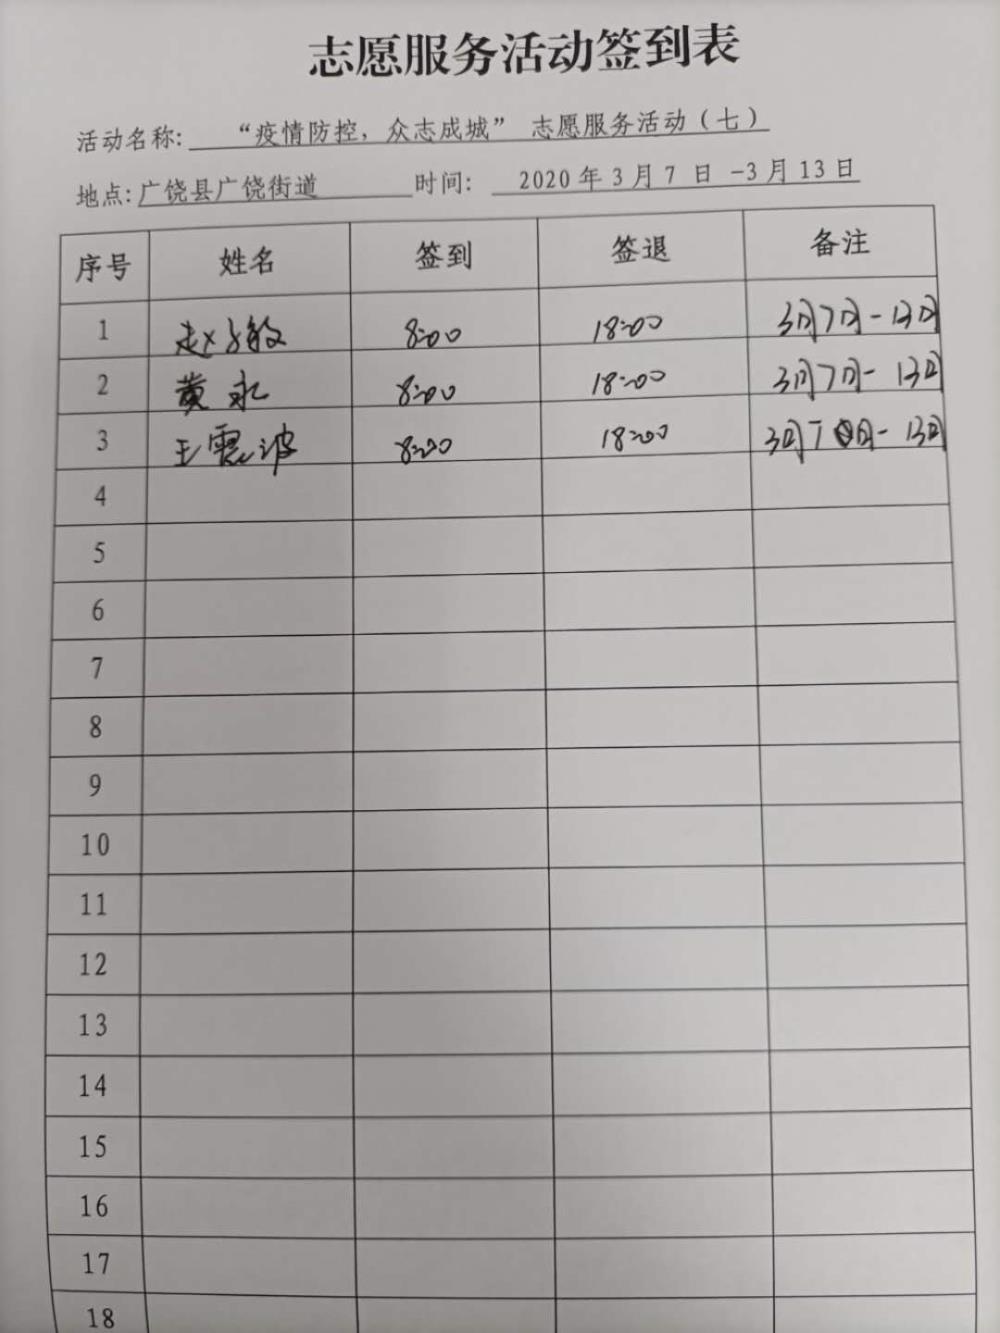 志愿服务活动签到表
活动名称: “疫情防控，众志成城” 志愿服务活动（七）
地点: 广饶县广饶街道 时间: 2020 年 3 月 7 日 -3 月 13 日
序号 姓名 签到 签退 备注
1 赵 敏 8:00 18:00 3月7日-13日
2 黄永 8:00 18:00 3月7日-13日
3 王 波 8:00 18:00 3月7日-13日
4
5
6
7
8
9
10
11
12
13
14
15
16
17
18